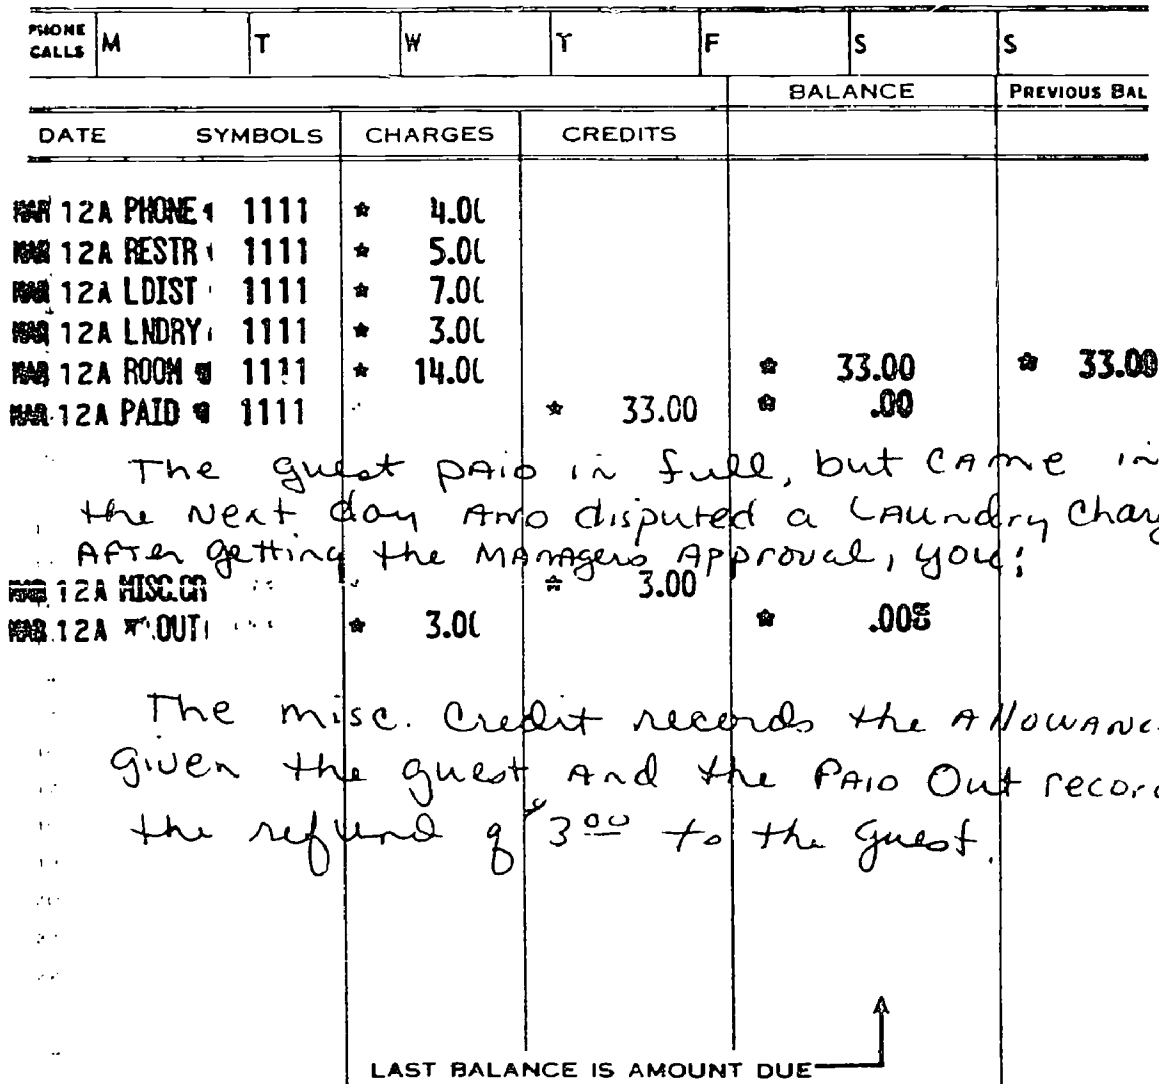 PHONE CALLS M T W T F S S
BALANCE PREVIOUS BAL
DATE SYMBOLS CHARGES CREDITS
MAR 12A PHONE 1111 * 4.00
MAR 12A RESTR 1111 * 5.00
MAR 12A LDIST 1111 * 7.00
MAR 12A LNDRY 1111 * 3.00
MAR 12A ROOM 1111 * 14.00 * 33.00 * 33.00
MAR 12A PAID 1111 * 33.00 * .00
The guest paid in full, but came in
the next day and disputed a Laundry Charg
After getting the Managers Approval, you:
MAR 12A MISC.CR * 3.00
MAR 12A OUT * 3.00 * .00
The misc. Credit records the Allowanc
given the guest and the Paid Out record
the refund of $3.00 to the guest.
LAST BALANCE IS AMOUNT DUE